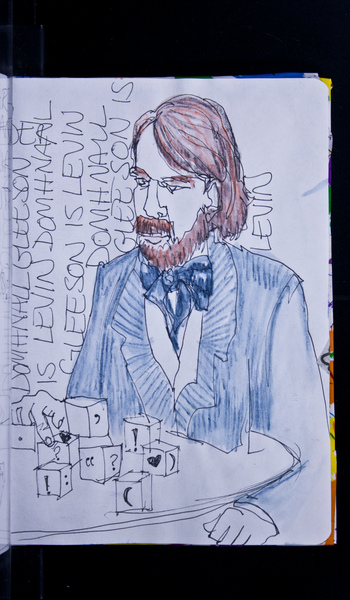 DOMHNALL GLEESON
IS LEVIN DOMHNALL
GLEESON IS LEVIN
DOMHNALL
GLEESON IS
LEVIN
,
!
?
“ ?
♥ )
!
(